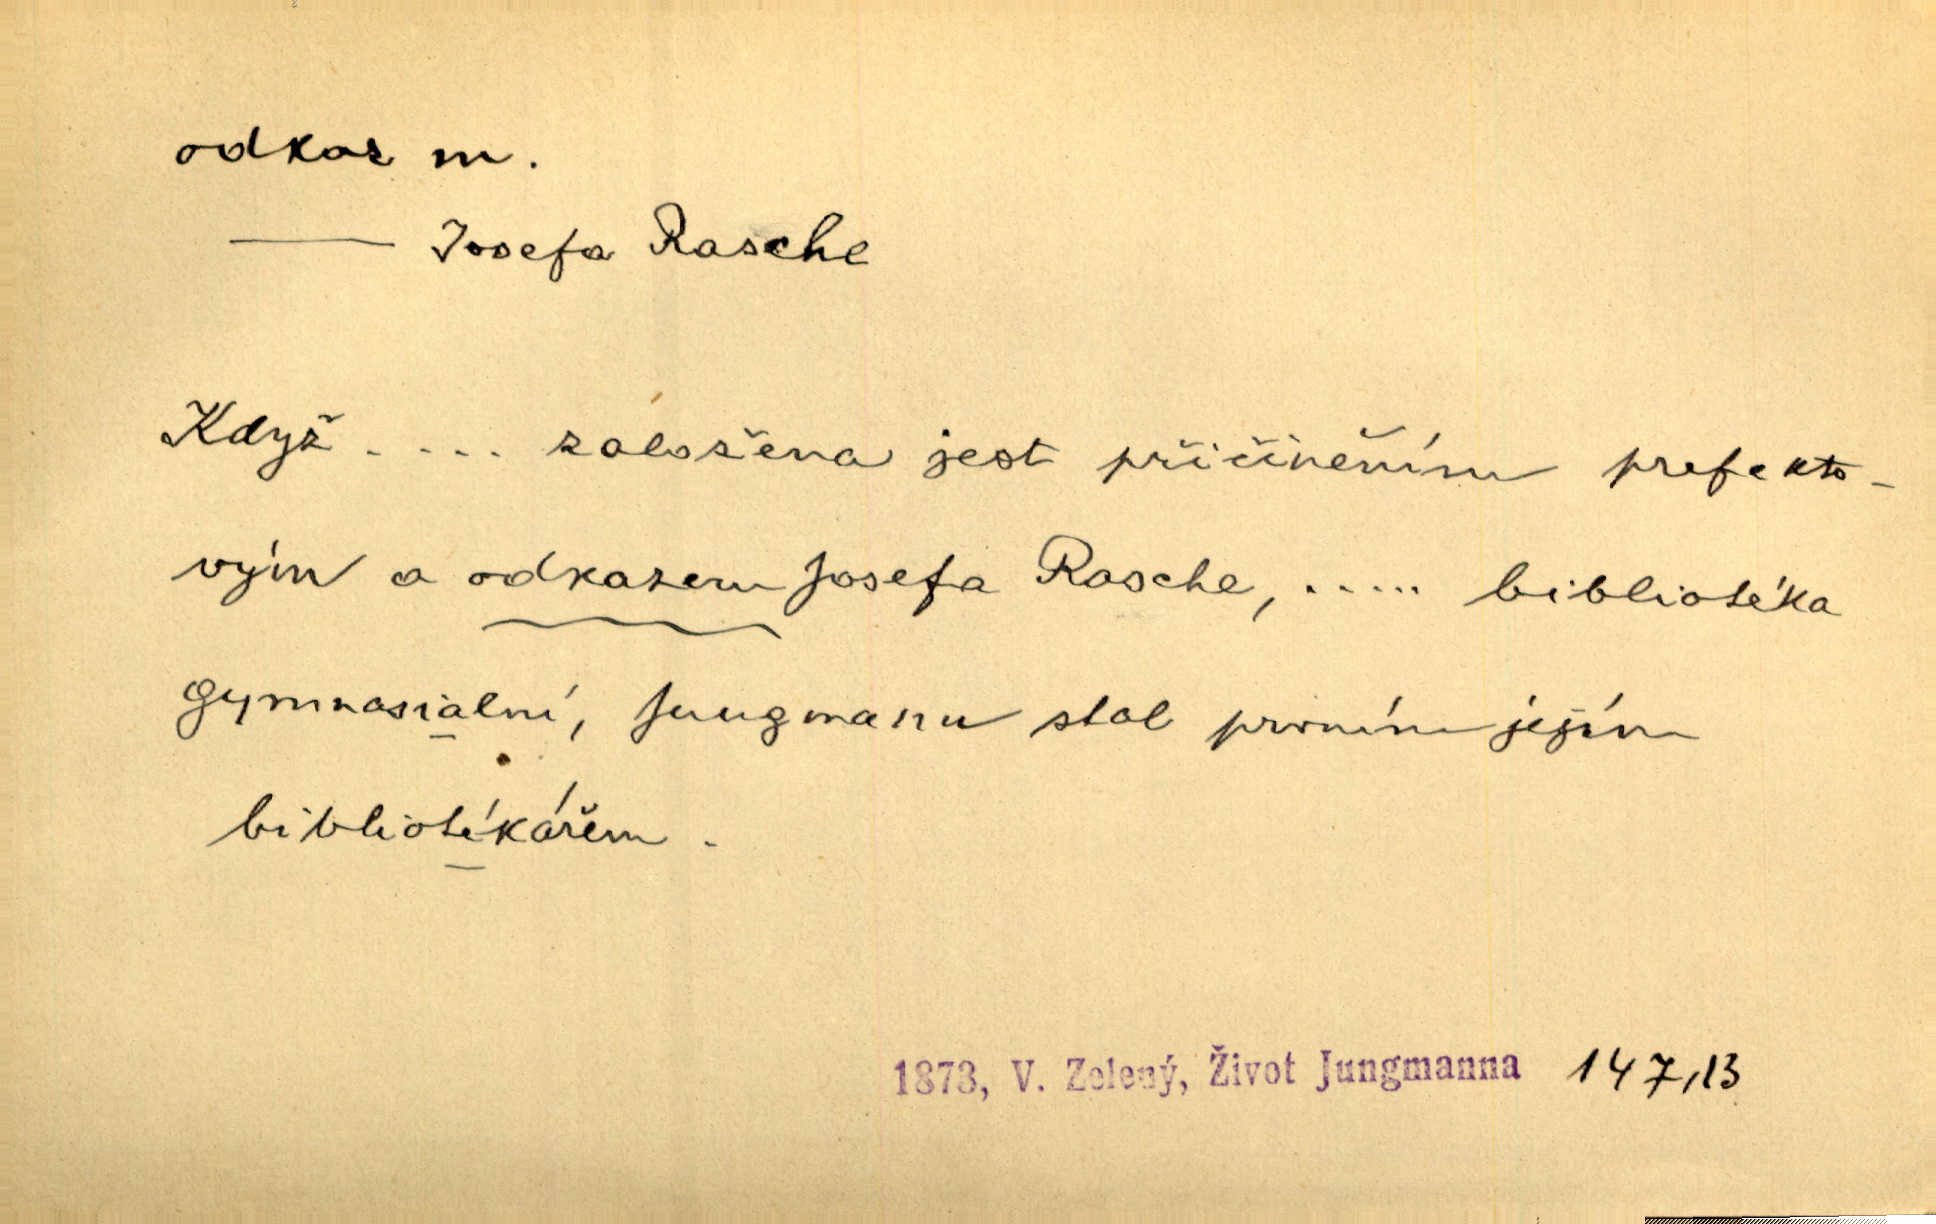 odkaz m.
— Josefa Rasche
Když .... založena jest přičiněním prefekto-
vým a odkazem Josefa Rasche, ..... bibliotéka
gymnasialní, Jungmann stal prvním jejím
bibliotékářem.
1873, V. Zelený, Život Jungmanna 147,13